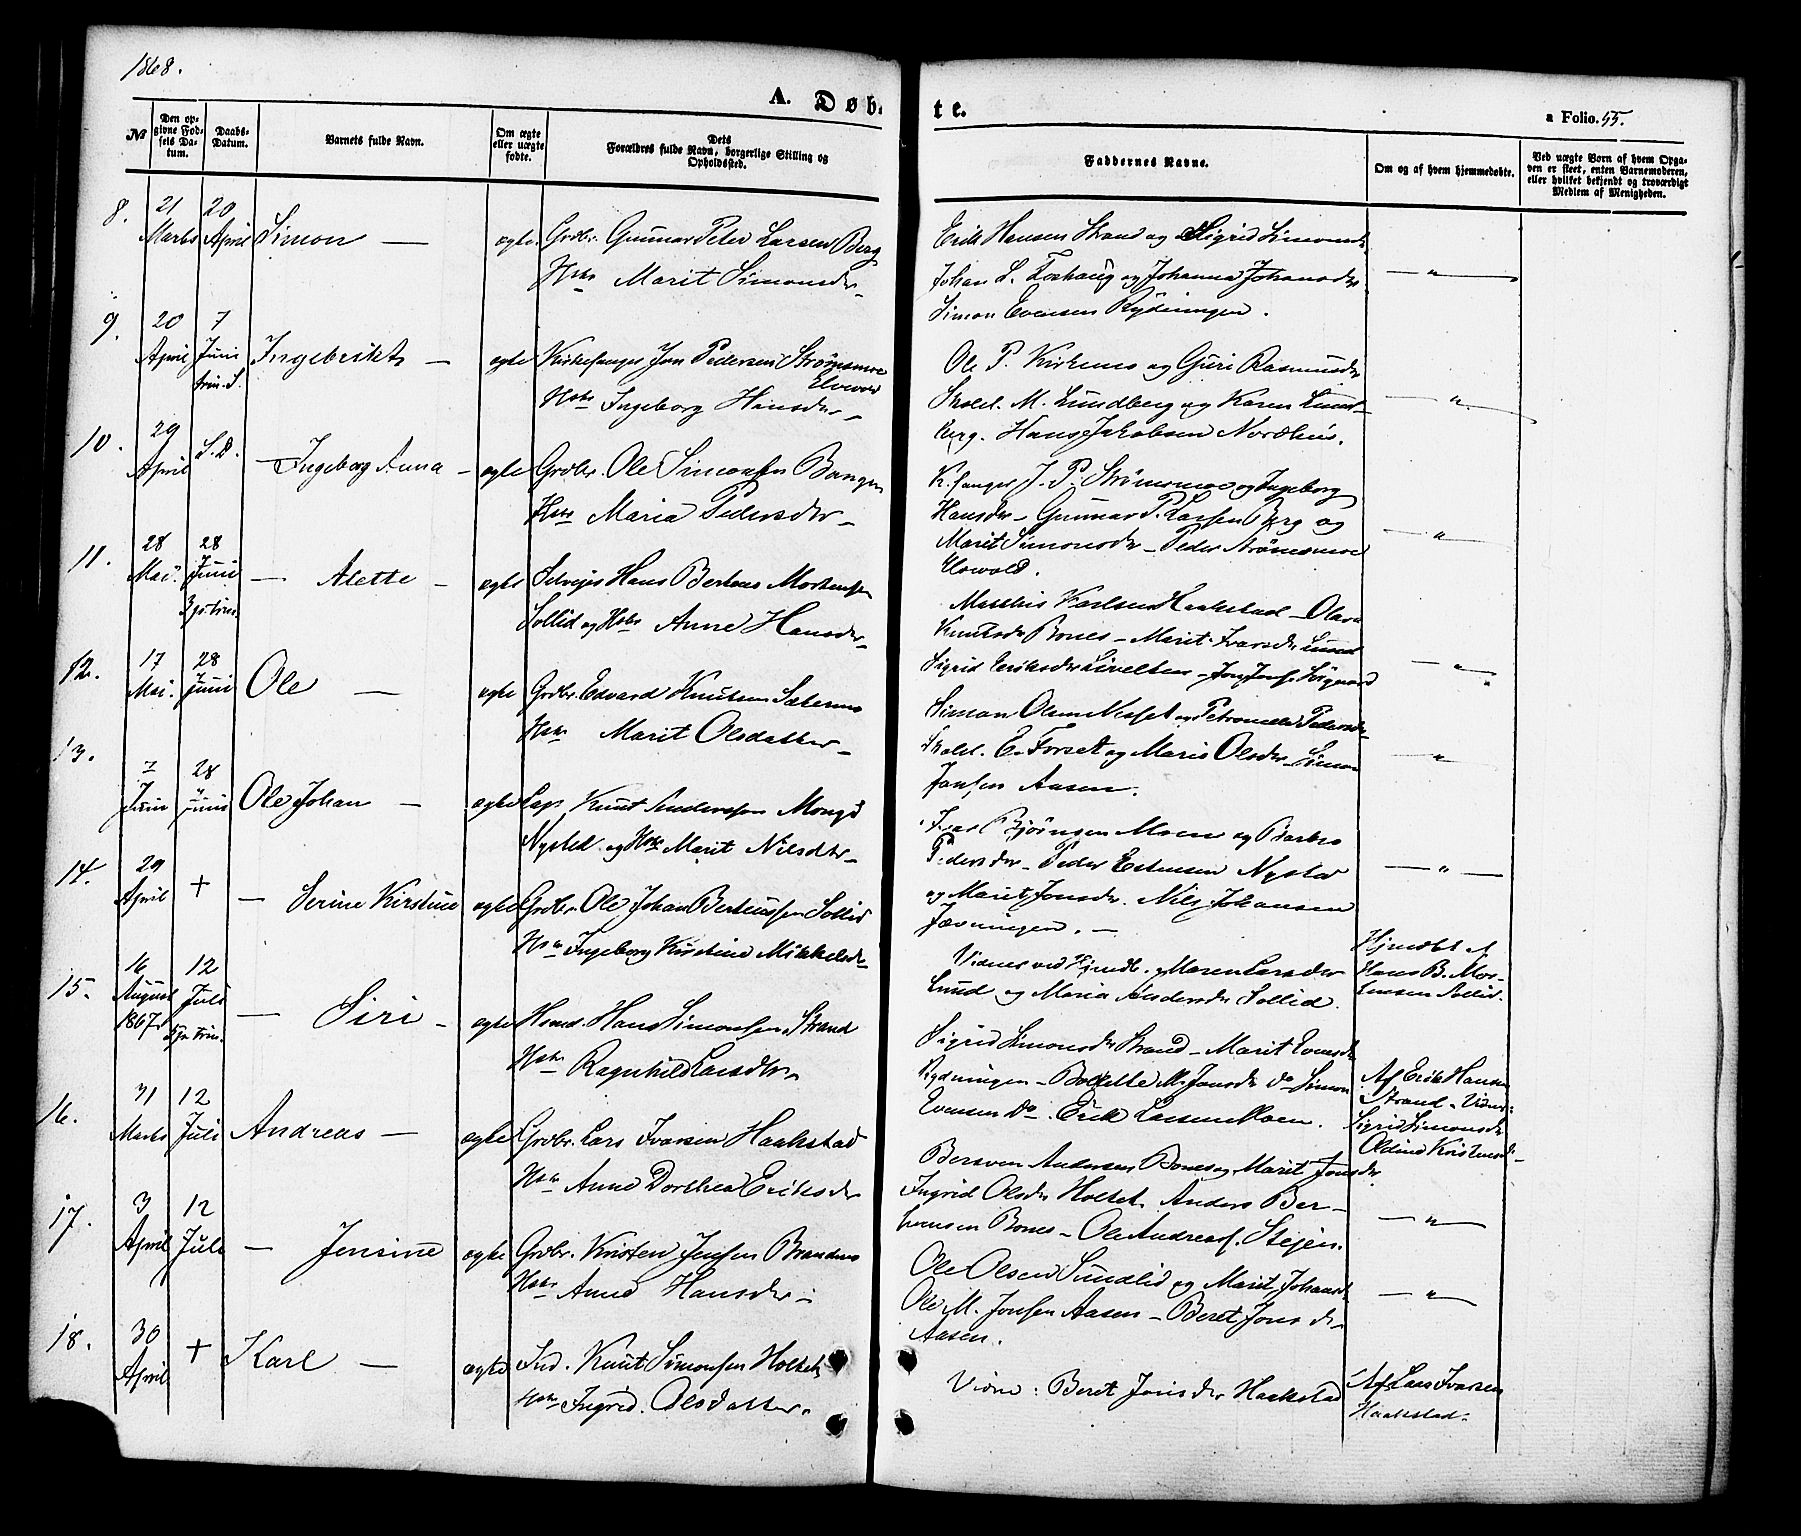 1868.
A. Døbte.
a Folio. 55.
№
Den opgivne Fødsels Datum.
Daabs-Datum.
Barnets fulde Navn.
Om ægte eller uægte fødte.
Dets Forældres fulde Navn, borgerlige Stilling og Opholdssted.
Faddernes Navne.
Om og af hvem hjemmedøbte.
Ved uægte Børn af hvem Opgaven er skeet, enten Barnemoderen, eller hvilket bekjendt og troværdigt Medlem af Menigheden.
8. 21 Marts 20 April Simon — ægte Grdbr. Gunnar Peter Larsen Berg
Hstr Marit Simonsdr
Erik Hansen Strand og Sigrid Simonsdr
Johan L. Foshaug og Johanna Johansdr
Simon Evensen Rydningen.
— " —
9. 20 April 7 Juni Trin. S. Ingebrikt — ægte Kirkesanger Jon Pedersen Strømsmoe
Elvevold
Hstr Ingeborg Hansdr
Ole P. Kirkemo og Guri Rasmusdr
Skolel. M. Lundberg og Karen Lund-
berg. Hans Jakobsen Nordhus.
— " —
10. 29 April S. D. — Ingeborg Anna — ægte Grdbr. Ole Simonsen Bangen
Hstr Maria Pedersdr
K.sanger J. P. Strømsmoe og Ingeborg
Hansdr — Gunnar P. Larsen Berg og
Marit Simonsdr — Peder Strømsmoe
Elvevold.
— " —
11. 28 Mai 28 Juni — Alette — ægte Selvejer Hans Berteus Mortensen
Sollid og Hstr Anne Hansdr
Matthis Karlsen Haakstad — Olava
Knutsdr Bones — Marit Ivarsdr Lund
Sigrid Eriksdr
— " —
12. 17 Mai 28 Juni Ole — ægte Grdbr. Edvard Knutsen Sætermo
Hstr Marit Olsdatter
Simon Olsen Nesset og Petronelle Pedersdr
Skolel. E. Forset og Maria Olsdr — Simon
Jonsen Aasen.
— " —
13. 7 Juni 28 Juni Ole Johan — ægte Lap Knut Andersen Mongs
Nysted og Hstr Marit Nilsdtr
Ivar Bjørngen Moen og Barbro
Pedersdr — Peder Estensen Nystad
og Marit Jonsdr. Nils Johansen
Jævningen. —
— " —
14. 29 April + — Serine Kirstine ægte Grdbr. Ole Johan Berteussen Sollid
Hstr Ingeborg Kirstine Mikkelsdr
Vidner ved Hjmdb. Maren Larsdr
Lund og Maria Andersdr Sollid.
Hjmdbt af
Hans B. Mor-
tensen Sollid.
15. 16 August 1867 12 Juli — Siri — ægte Hmd. Hans Simonsen Strand
Hstr Ragnhild Larsdtr
Sigrid Simonsdr Strand — Marit Evensdr
Rydningen — Bollette M. Jonsdr Do Simon
Evensen Do. Erik Larsen Moen.
Af Erik Hansen
Strand — Vidner:
Sigrid Simonsdr
Oldine Kristensdr
16. 31 Marts 12 Juli Andreas — ægte Grdbr. Lars Ivarsen Haakstad
Hstr Anne Dorthea Eriksdr
Bersven Andersen Bones og Marit Jonsdr.
Ingrid Olsdr Holtet. Anders Ber-
svensen Bones — Ole Andreas. Stejen.
— " —
17. 3 April 12 Juli — Jensine ægte Grdbr. Kristen Jensen Brandmo
Hstr Anne Hansdr
Ole Olsen Sundlid og Marit Johansdr
Ole M. Jonsen Aasen — Beret Jonsdr
Aasen.
— " —
18. 30 April + Karl — ægte Ind. Knut Simonsen Holtet
Hstr Ingrid Olsdatter
Vidne: Beret Jonsdr Haakstad
Af Lars Ivarsen
Haakstad.